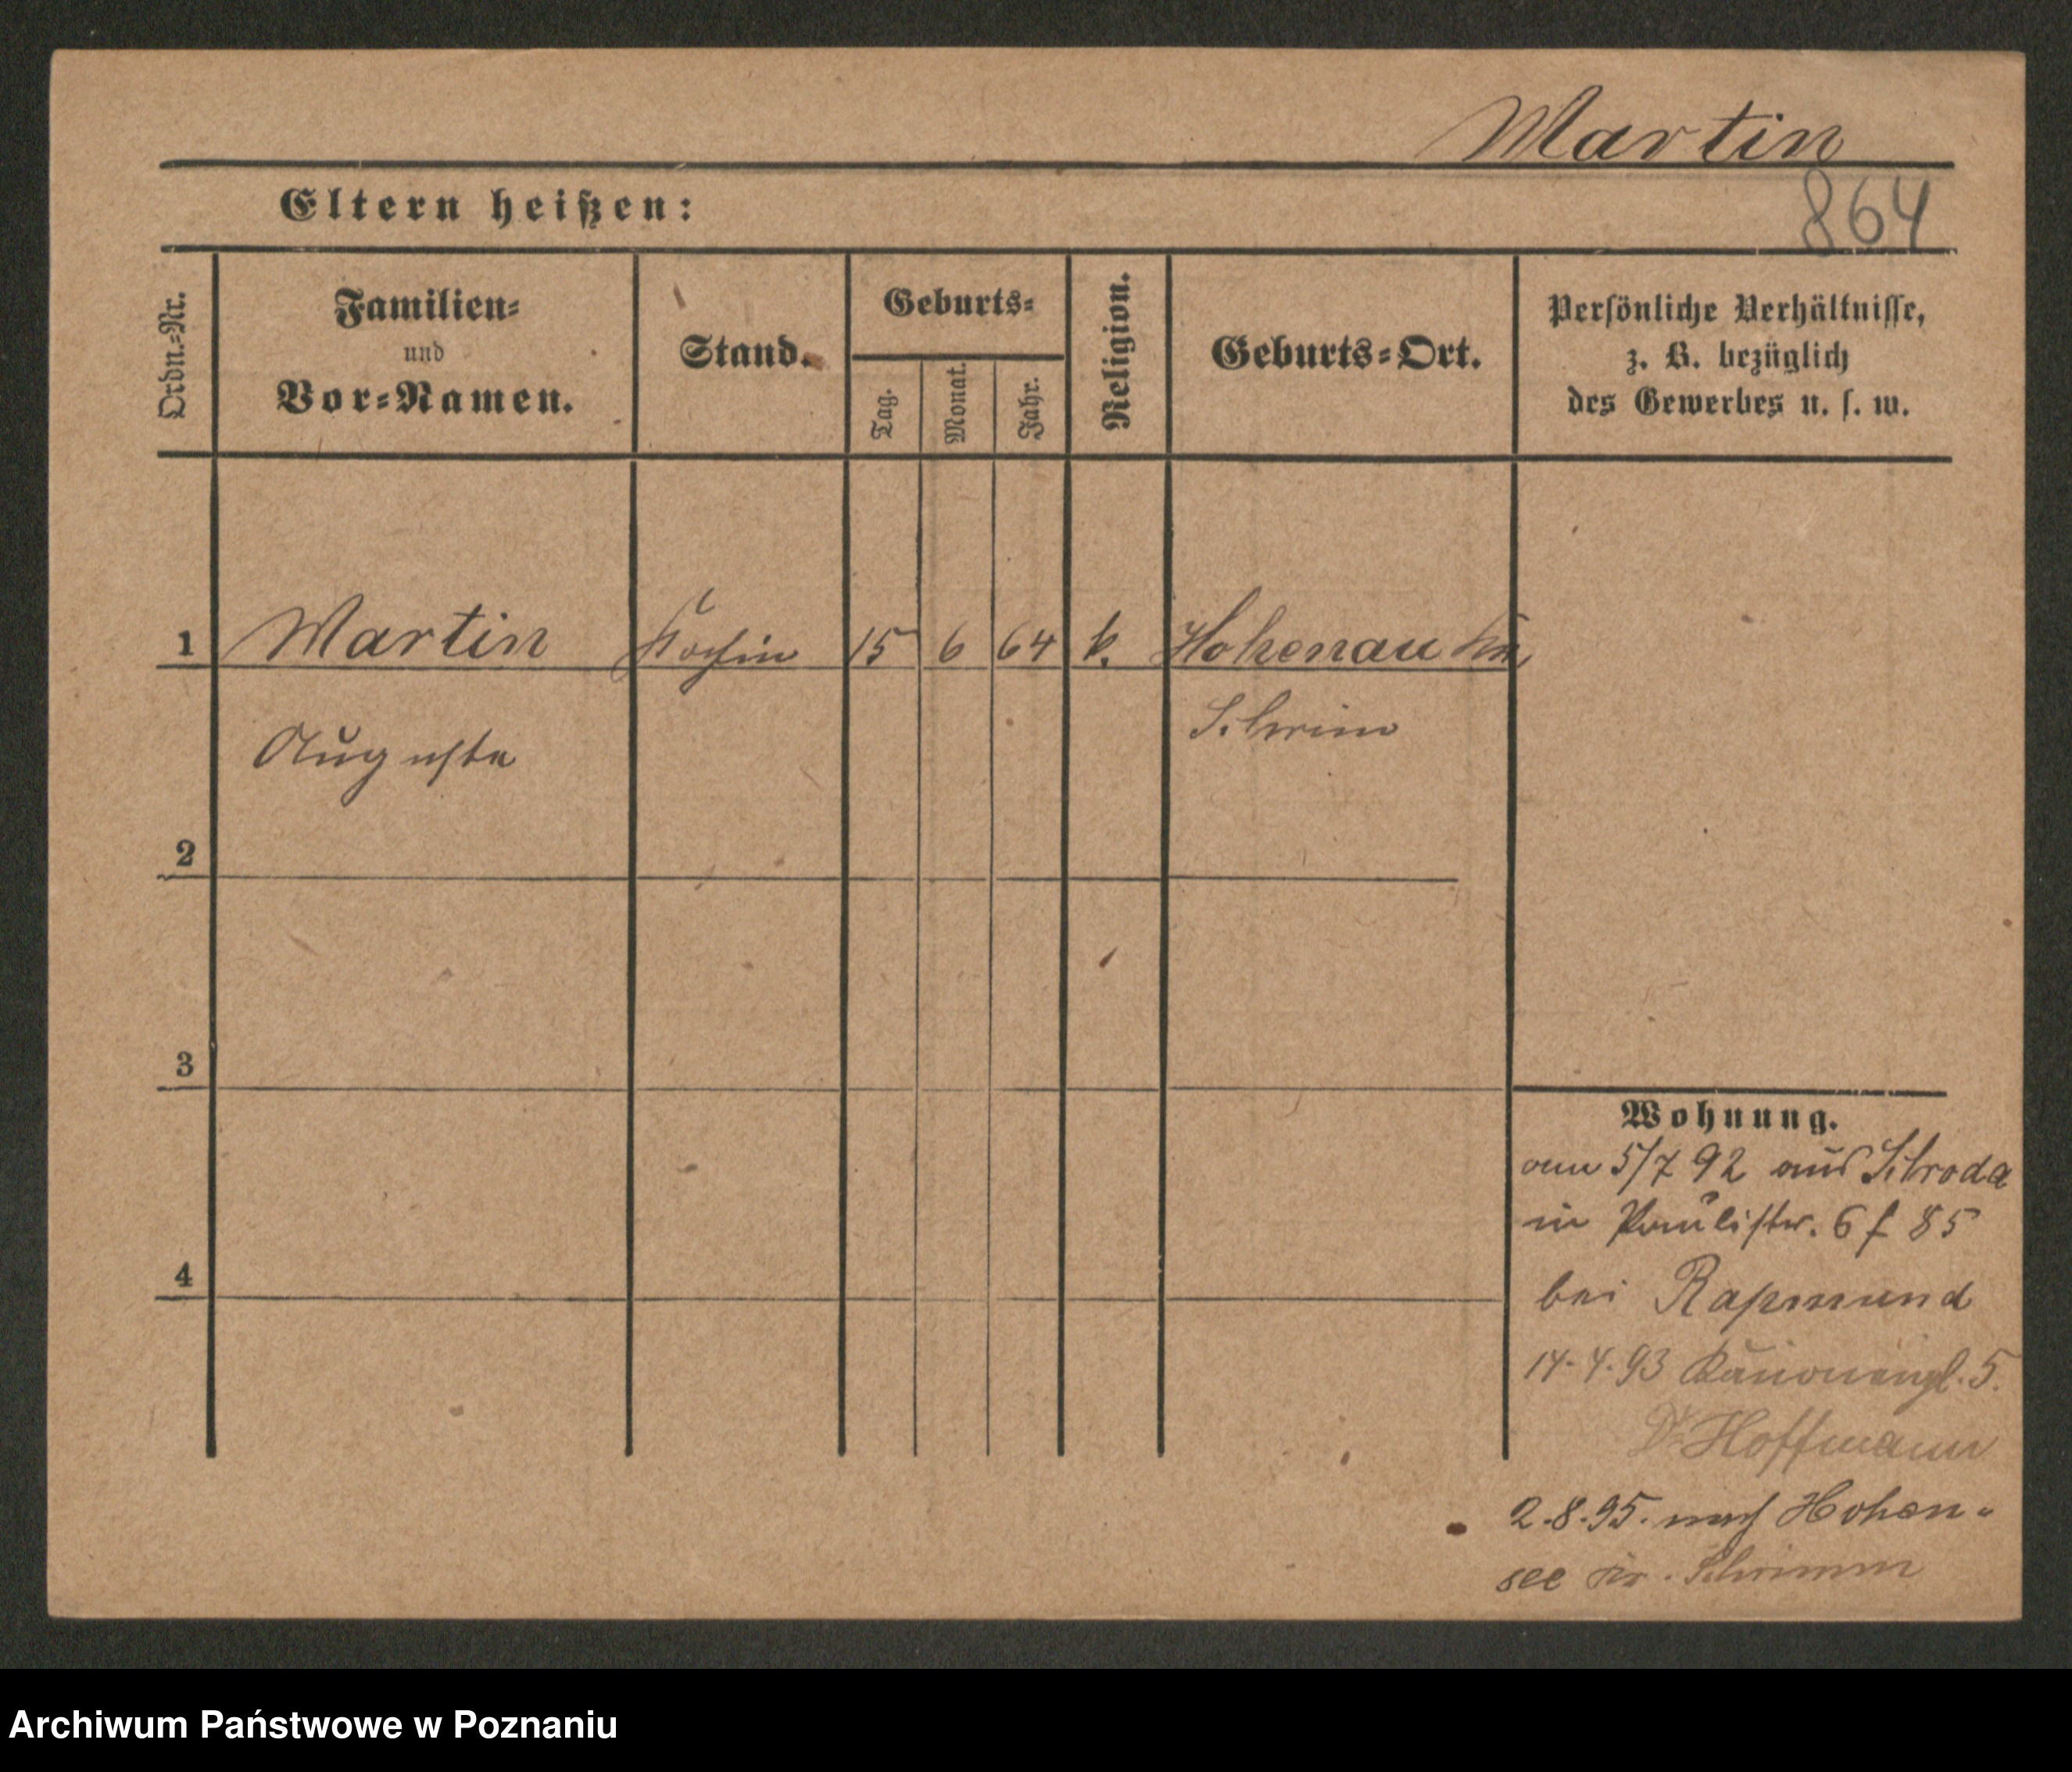 Martin
864
Eltern heißen:
Ordn.-Nr.
Familien-
und
Vor-Namen.
Stand.
Geburts-
Tag.
Monat.
Jahr.
Religion.
Geburts-Ort.
Persönliche Verhältnisse,
z. B. bezüglich
des Gewerbes u. s. w.
1 Martin Köchin 15 6 64 k. Hohenau Kr.
Auguste Schrim
2
3
4
Wohnung.
am 5/7 92 aus Schroda
in Paulistr. 6 f 85
bei Rapmund
14.4.93 Kanonenpl. 5.
Dr Hoffmann
2.8.95. nach Hohen-
see Kr. Schrimm
Archiwum Państwowe w Poznaniu